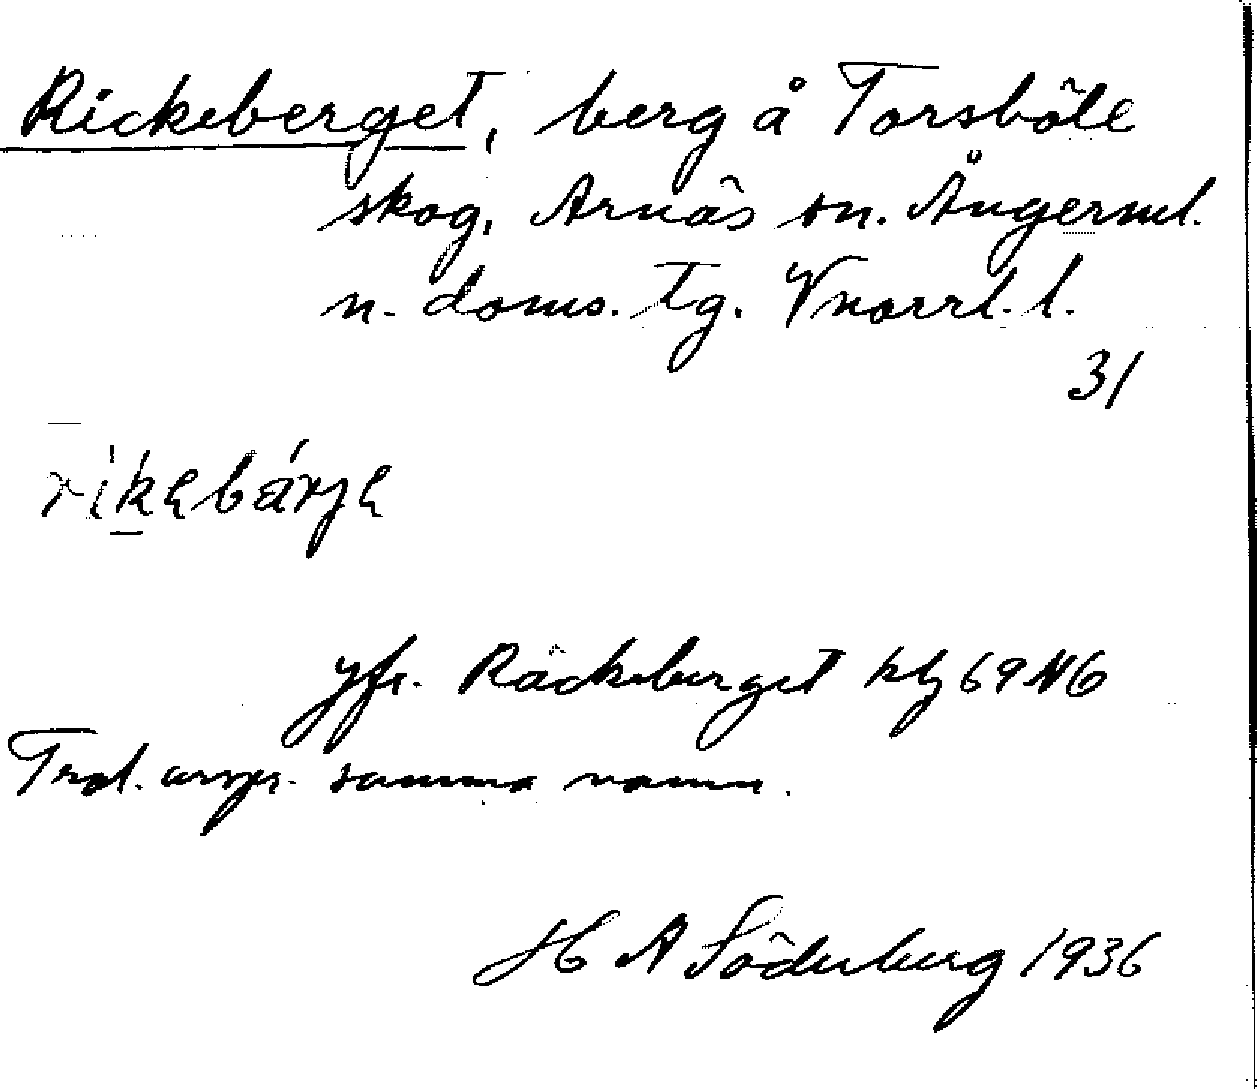 Rickeberget, berg å Torsböle
skog, Arnäs sn. Ångerml.
n. doms. Tg. Vnorrl. l.
31
rikebárje
jfr. Räckeberget kbl 69 N6
Trol. urspr. samma namn.
H A Söderberg 1936